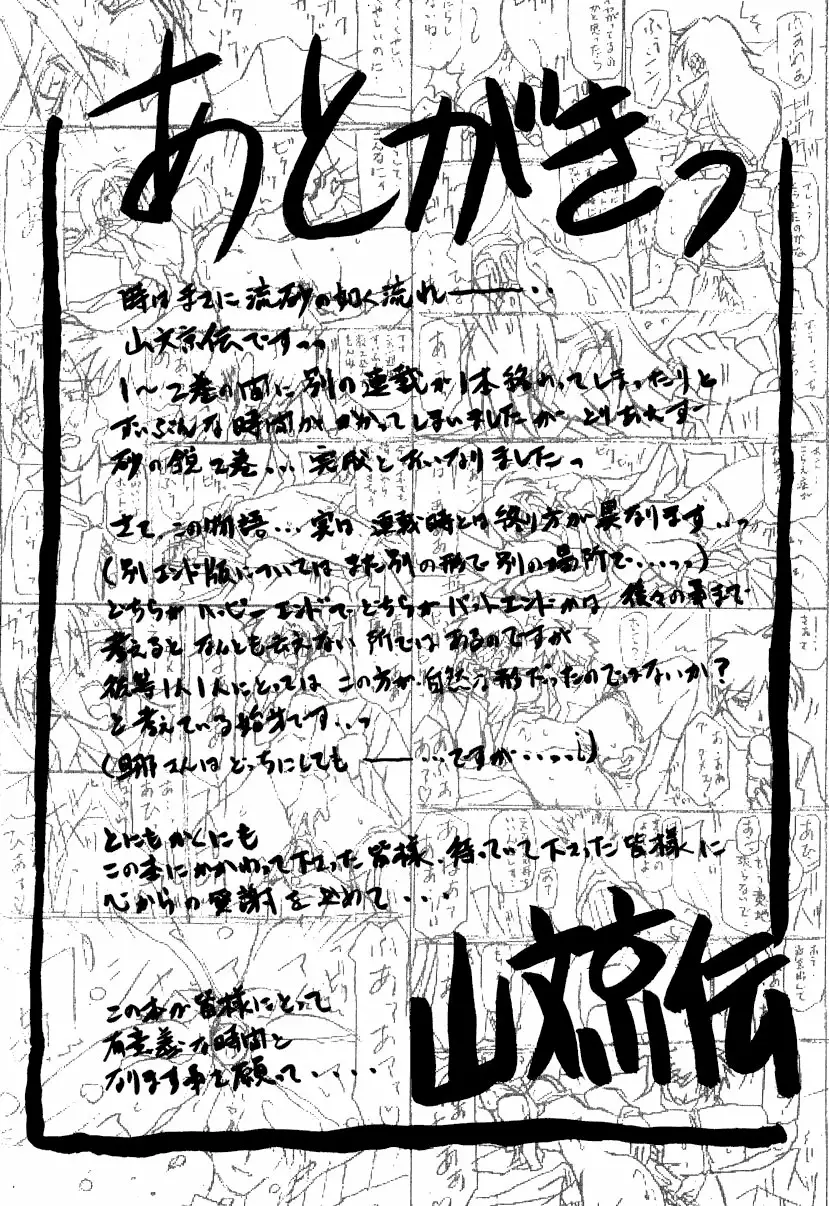 あとがきっ
時はまさに流砂の如く流れ━━‥
山文京伝ですっっ
1〜2巻の間に別の連載が1本終わってしまったりと
ずいぶんな時間がかかってしまいましたが とりあえず
砂の鎖2巻…完成とあいなりましたっ
さて、この物語…実は 連載時とは終り方が異なります‥っ
(別エンド版については また別の形で別の場所で…っっ)
どちらがハッピーエンドで どちらがバッドエンドかは 種々の事まで
考えると なんとも云えない所ではあるのですが
彼等1人1人にとっては この方が自然な形だったのではないか?
と考えている始末です‥っ
(旦那さんはどっちにしても ━━…ですが…っっ)
とにもかくにも
この本にかかわって下さった皆様、待っていて下さった皆様に
心からの感謝を込めて・・・
この本が皆様にとって
有意義な時間と
なります事を願って・・・・
山文京伝